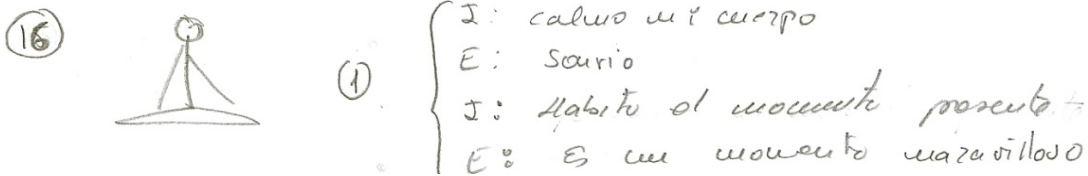 16
1
I: calmo mi cuerpo
E: Sonrío
I: Habito el momento presente
E: Es un momento maravilloso